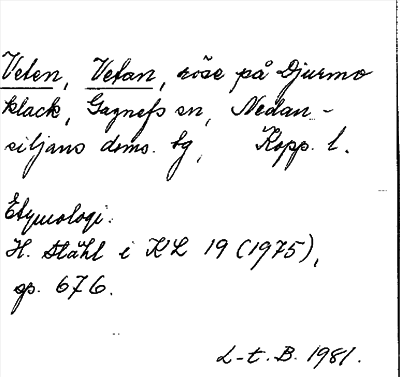 Veten, Vetan, röse på Djurmo
klack, Gagnefs sn, Nedan-
siljans doms. tg, Kopp. l.
Etymologi:
H. Ståhl i KL 19 (1975),
sp. 676.
L-t. B. 1981.